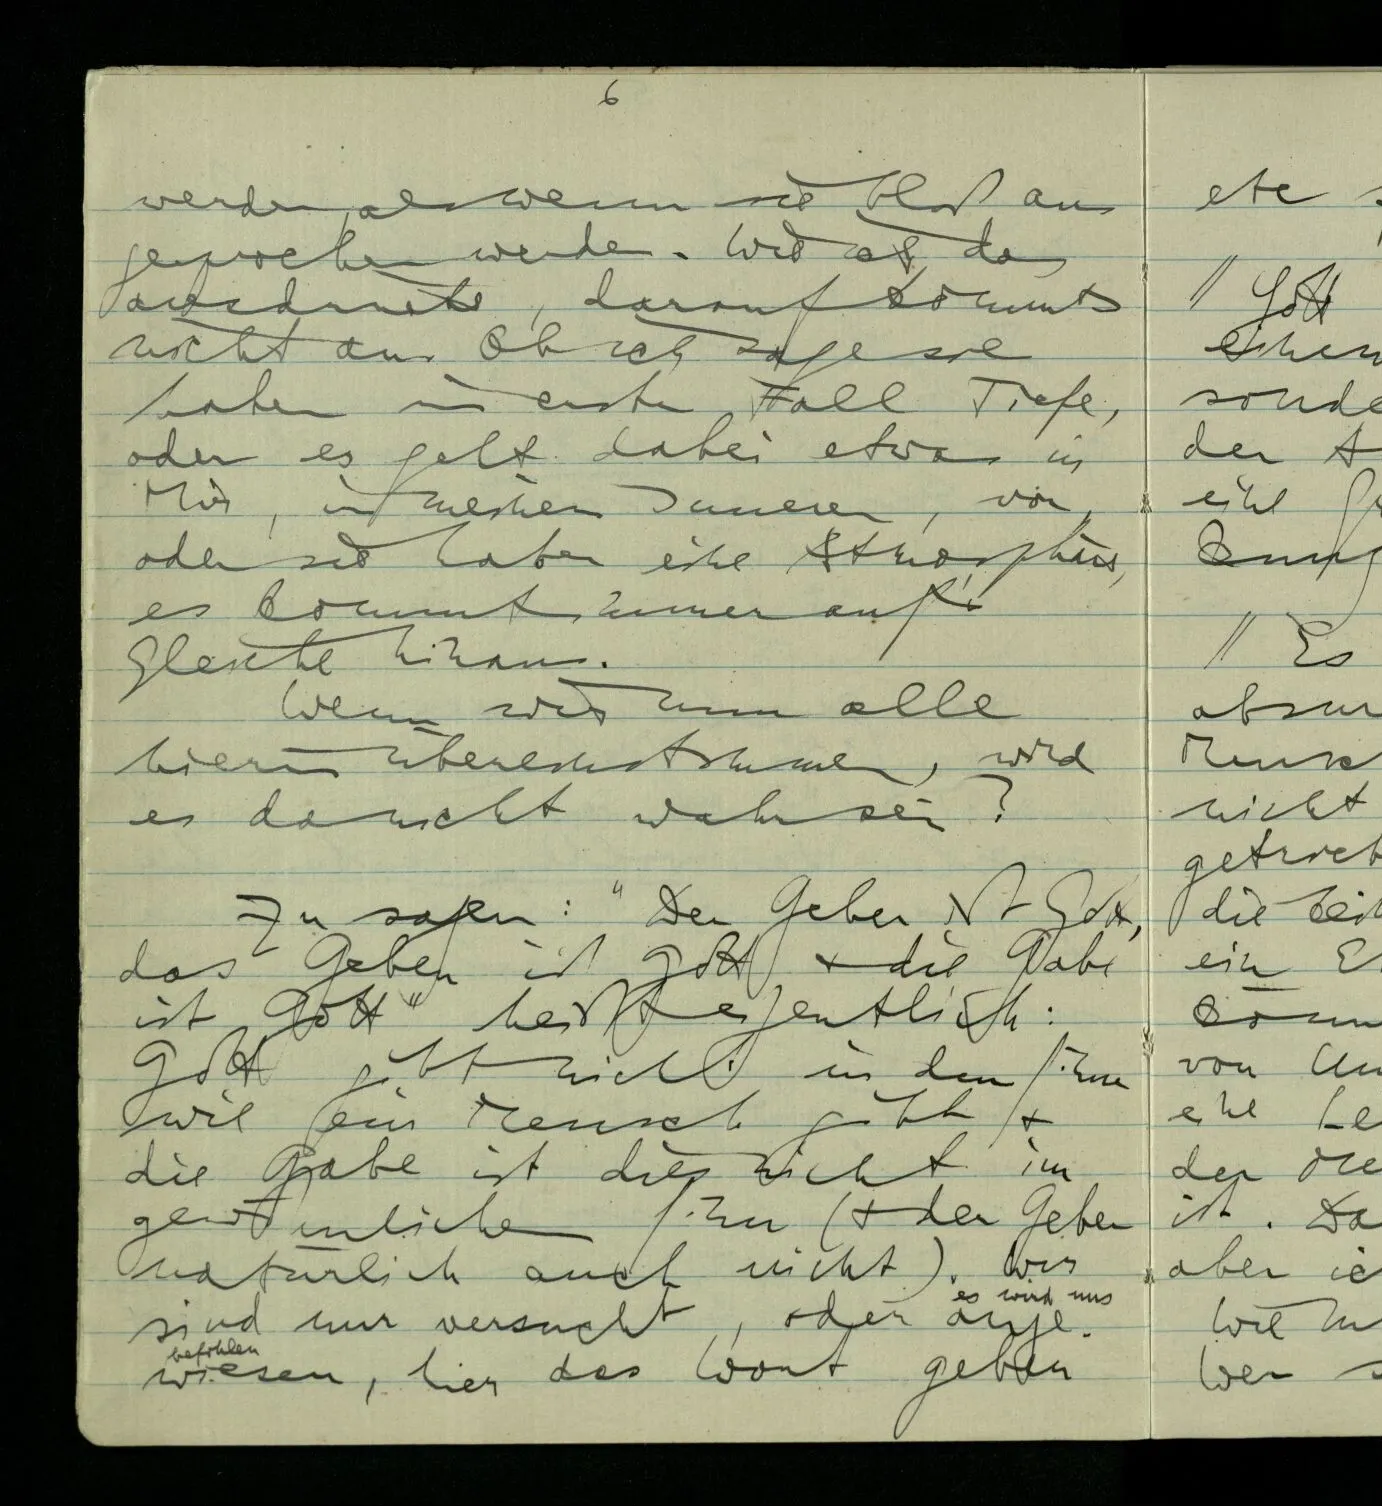 6
werden, als wenn sie bloß aus
gesprochen werden. Wie ich das
ausdrücke, darauf kommts
nicht an. Ob ich sage sie
haben im ersten Fall Tiefe,
oder es geht dabei etwas in
mir, in meinem Inneren, vor,
oder sie haben eine Atmosphäre,
es kommt immer auf's
Gleiche hinaus.
Wenn wir nun alle
hierin übereinstimmen, wird
es da nicht wahr sein?
Zu sagen: "Der Geber ist Gott,
das Geben ist Gott + die Gabe
ist Gott" heißt eigentlich:
Gott gibt nicht in dem Sinne
wie ein Mensch gibt +
die Gabe ist dies nicht im
gewöhnlichen Sinn (+ der Geber
natürlich auch nicht). Wir
es wird uns
sind nur versucht, oder ange-
befohlen
wiesen, hier das Wort geben
etc
// Gott
der
// Es
nicht
die
ein
von
der
ist. Da
aber
Wer